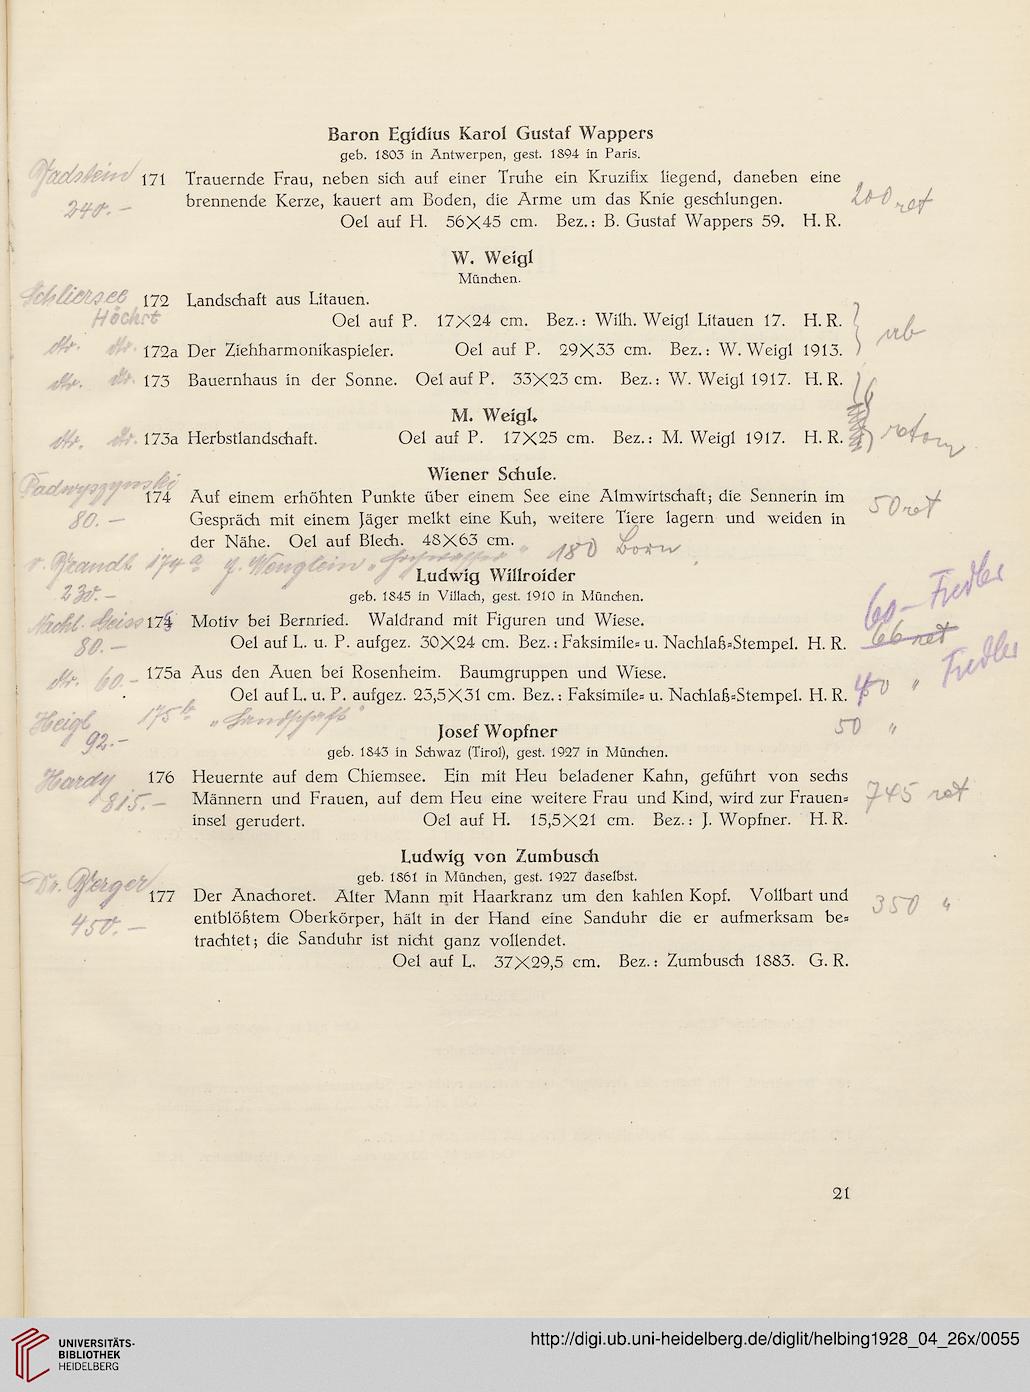 Baron Egidius Karol Gustaf Wappers
geb. 1803 in Antwerpen, gest. 1894 in Paris.
171 Trauernde Frau, neben sich auf einer Truhe ein Kruzifix liegend, daneben eine
240.—
brennende Kerze, kauert am Boden, die Arme um das Knie geschlungen.
200 ret
Oel auf H. 56×45 cm. Bez.: B. Gustaf Wappers 59. H. R.
W. Weigl
München.
Schliersee 172 Landschaft aus Litauen.
Höchst
Oel auf P. 17×24 cm. Bez.: Wilh. Weigl Litauen 17. H. R.
172a Der Ziehharmonikaspieler. Oel auf P. 29×33 cm. Bez.: W. Weigl 1913.
173 Bauernhaus in der Sonne. Oel auf P. 33×23 cm. Bez.: W. Weigl 1917. H. R.
M. Weigl.
173a Herbstlandschaft. Oel auf P. 17×25 cm. Bez.: M. Weigl 1917. H. R.
Wiener Schule.
174 Auf einem erhöhten Punkte über einem See eine Almwirtschaft; die Sennerin im
50 ret
80.—
Gespräch mit einem Jäger melkt eine Kuh, weitere Tiere lagern und weiden in
der Nähe. Oel auf Blech. 48×63 cm.
v. Brandt 174 a J. Wenglein „Hochwasser" 180 Born
Ludwig Willroider
geb. 1845 in Villach, gest. 1910 in München.
230.—
60— Fiedler
Nachl. Geiss 175 Motiv bei Bernried. Waldrand mit Figuren und Wiese.
66 ret
80.—
Oel auf L. u. P. aufgez. 30×24 cm. Bez.: Faksimile= u. Nachlaß=Stempel. H. R.
60.— 175a Aus den Auen bei Rosenheim. Baumgruppen und Wiese.
Fiedler
Oel auf L. u. P. aufgez. 23,5×31 cm. Bez.: Faksimile= u. Nachlaß=Stempel. H. R.
Heigl 175 b „Landschaft"
50 "
92.—
Josef Wopfner
geb. 1843 in Schwaz (Tirol), gest. 1927 in München.
Hardy 176 Heuernte auf dem Chiemsee. Ein mit Heu beladener Kahn, geführt von sechs
815.—
745 ret
Männern und Frauen, auf dem Heu eine weitere Frau und Kind, wird zur Frauen=
insel gerudert. Oel auf H. 15,5×21 cm. Bez.: J. Wopfner. H. R.
Ludwig von Zumbusch
geb. 1861 in München, gest. 1927 daselbst.
Dr. Berger 177 Der Anachoret. Alter Mann mit Haarkranz um den kahlen Kopf. Vollbart und
450.—
350 "
entblößtem Oberkörper, hält in der Hand eine Sanduhr die er aufmerksam be=
trachtet; die Sanduhr ist nicht ganz vollendet.
Oel auf L. 37×29,5 cm. Bez.: Zumbusch 1883. G. R.
21
UNIVERSITÄTS-
BIBLIOTHEK
HEIDELBERG
http://digi.ub.uni-heidelberg.de/diglit/helbing1928_04_26x/0055